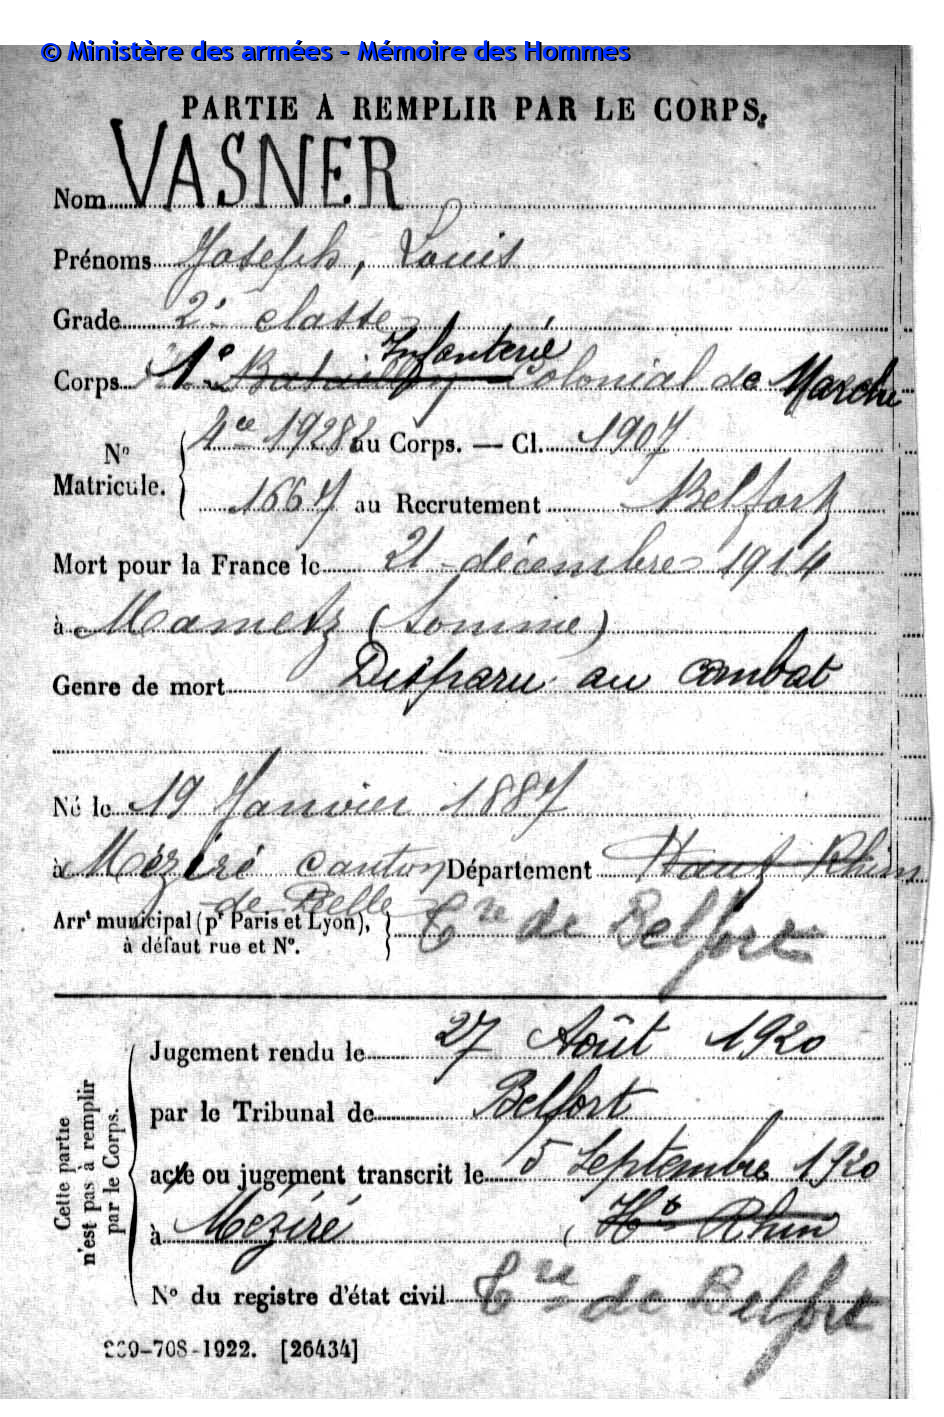 © Ministère des armées - Mémoire des Hommes
PARTIE A REMPLIR PAR LE CORPS.
Nom VASNER
Prénoms Joseph, Louis
Grade 2e classe
Infanterie
Corps 1e Bataillon Colonial de Marche
No Matricule. 4ce 19282 au Corps. — Cl. 1907
1667 au Recrutement Belfort
Mort pour la France le 21 décembre 1914
à Mametz (Somme)
Genre de mort Disparu au combat
Né le 19 Janvier 1887
à Méziré canton Département Haut Rhin
de Delle
Arrt municipal (pr Paris et Lyon), à défaut rue et No. Tre de Belfort
Cette partie n'est pas à remplir par le Corps.
Jugement rendu le 27 Août 1920
par le Tribunal de Belfort
acte ou jugement transcrit le 5 Septembre 1920
à Méziré (Ht Rhin
No du registre d'état civil Tre de Belfort
-708-1922. [26434]